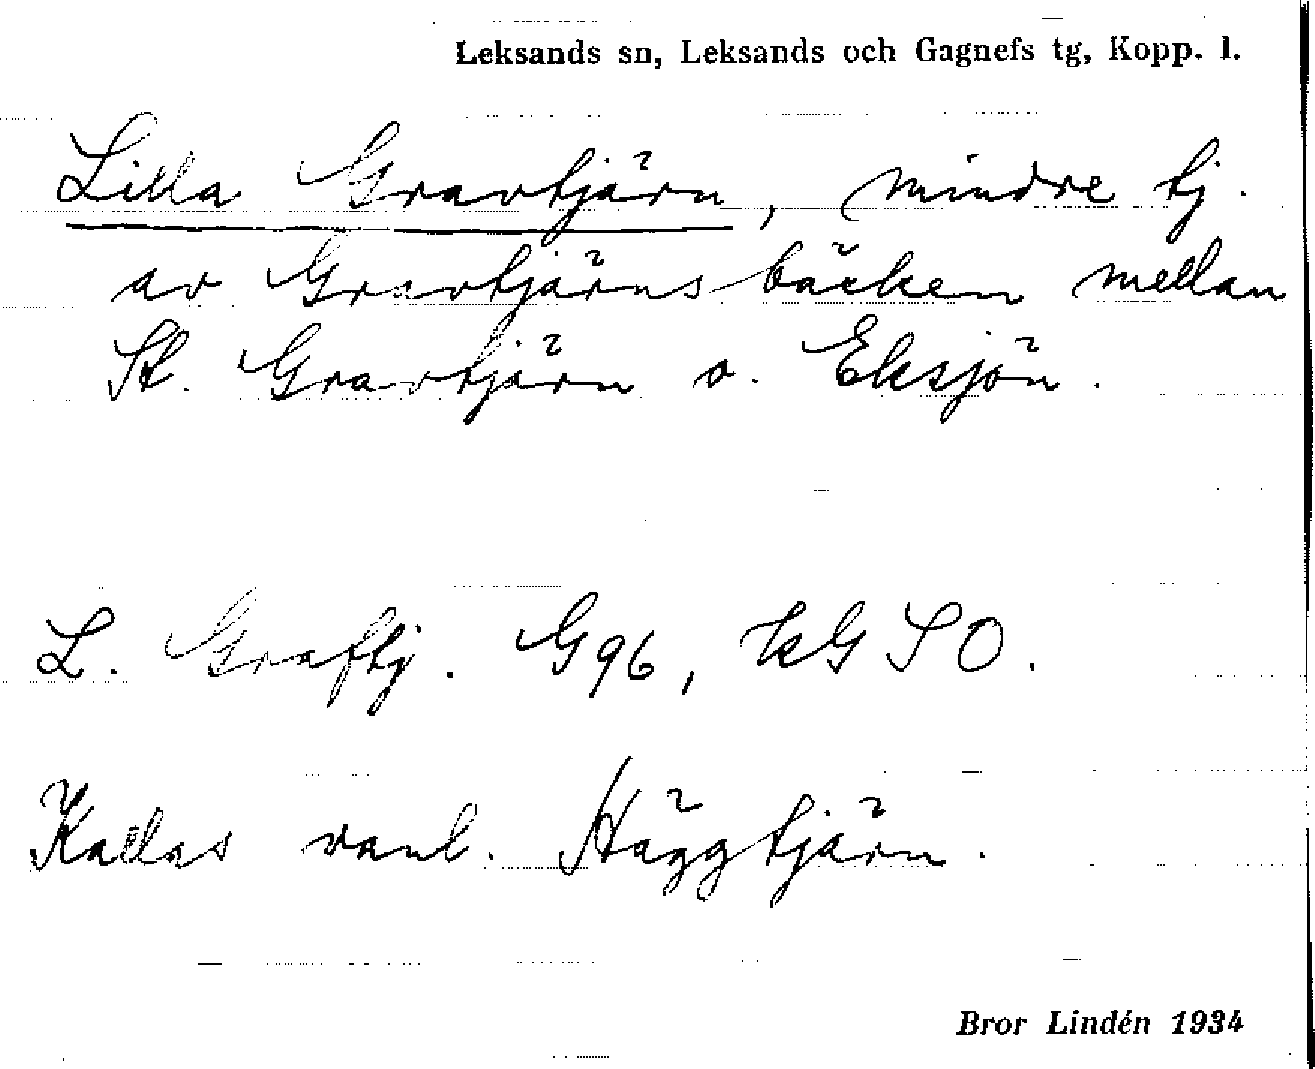 Leksands sn, Leksands och Gagnefs tg, Kopp. l.
Lilla Gravtjärn, mindre tj.
av Gravtjärnsbäcken mellan
St. Gravtjärn o. Eksjön.
L. Graftj. G96, kG SO.
Kallas vanl. Häggtjärn.
Bror Lindén 1934